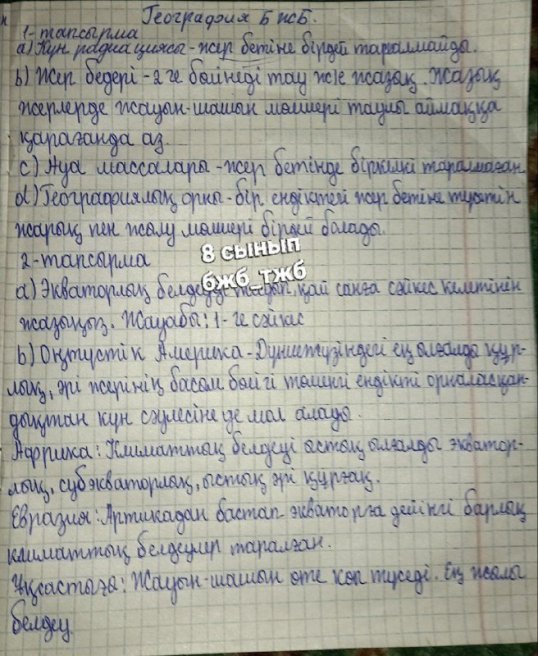 География БЖБ.
1-тапсырма
а) Күн радиациясы - жер бетіне бірдей таралмайды.
b) Жер бедері - 2 ге бөлінеді тау және жазық. Жазық
жерлерде жауын-шашын мөлшері таулы аймаққа
қарағанда аз.
с) Ауа массалары - жер бетінде біркелкі таралмаған
d) Географиялық орны - бір ендіктегі жер бетіне түсетін
жарық пен жылу мөлшері бірдей болады.
8 сынып
2-тапсырма
бжб_тжб
а) Экваторлық белдеуде қай санға сәйкес келетінен
жазыңыз. Жауабы: 1-ге сәйкес
b) Оңтүстік Америка - Дүниежүзіндегі ең ылғалды құр-
лық, әрі жерінің басым бөлігі төменгі ендікте орналасқан-
дықтан күн сәулесін де мол алады.
Африка: Климаттық белдеуі ыстық ылғалды экватор-
лық, субэкваторлық, ыстық әрі құрғақ.
Евразия: Артикадан бастап экваторға дейінгі барлық
климаттық белдеулер таралған.
Ұқсастығы: Жауын-шашын өте көп түседі. Ең жылы
белдеу